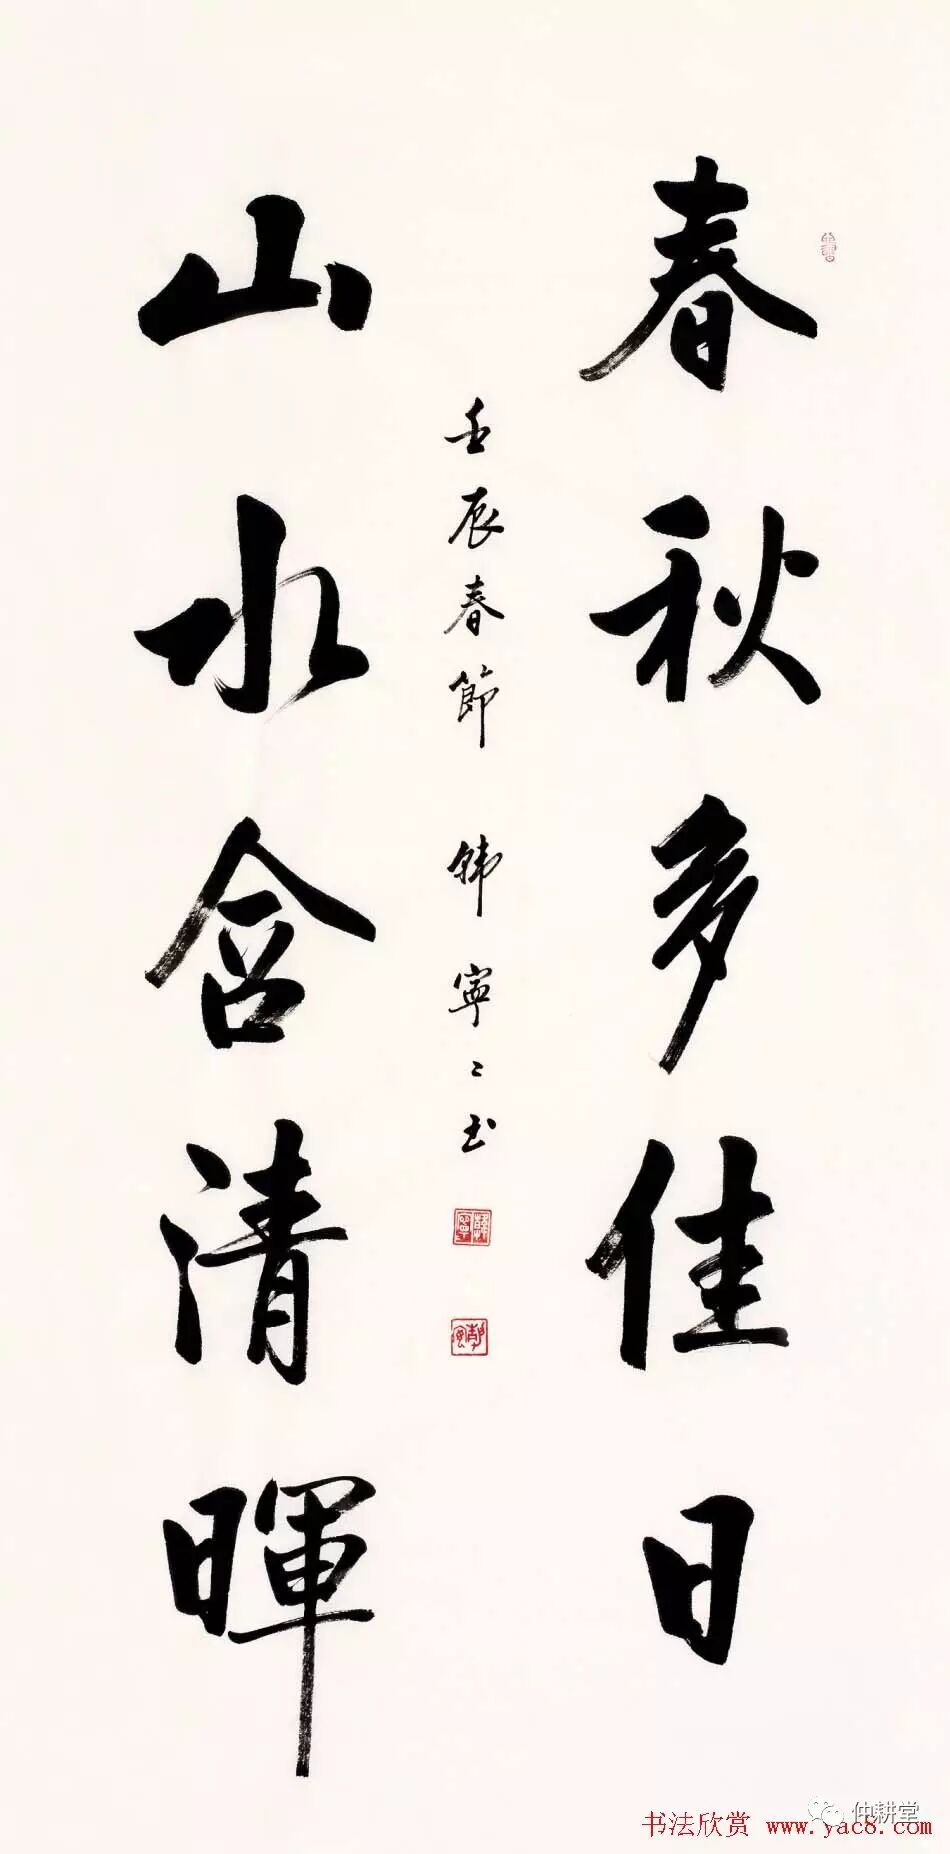 春秋多佳日
山水含清暉
壬辰春節 韓寧寧書
韓寧
仲耕堂
书法欣赏 www.yac8.com